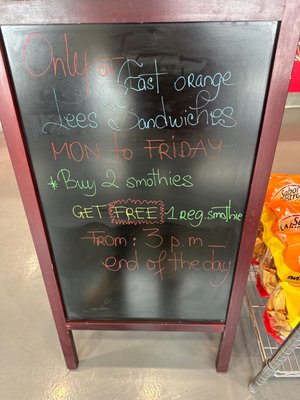 Only at East orange
Lees Sandwiches
MON to FRIDAY
*Buy 2 smothies
GET FREE 1 reg. smothie
From: 3 p.m —
end of the day